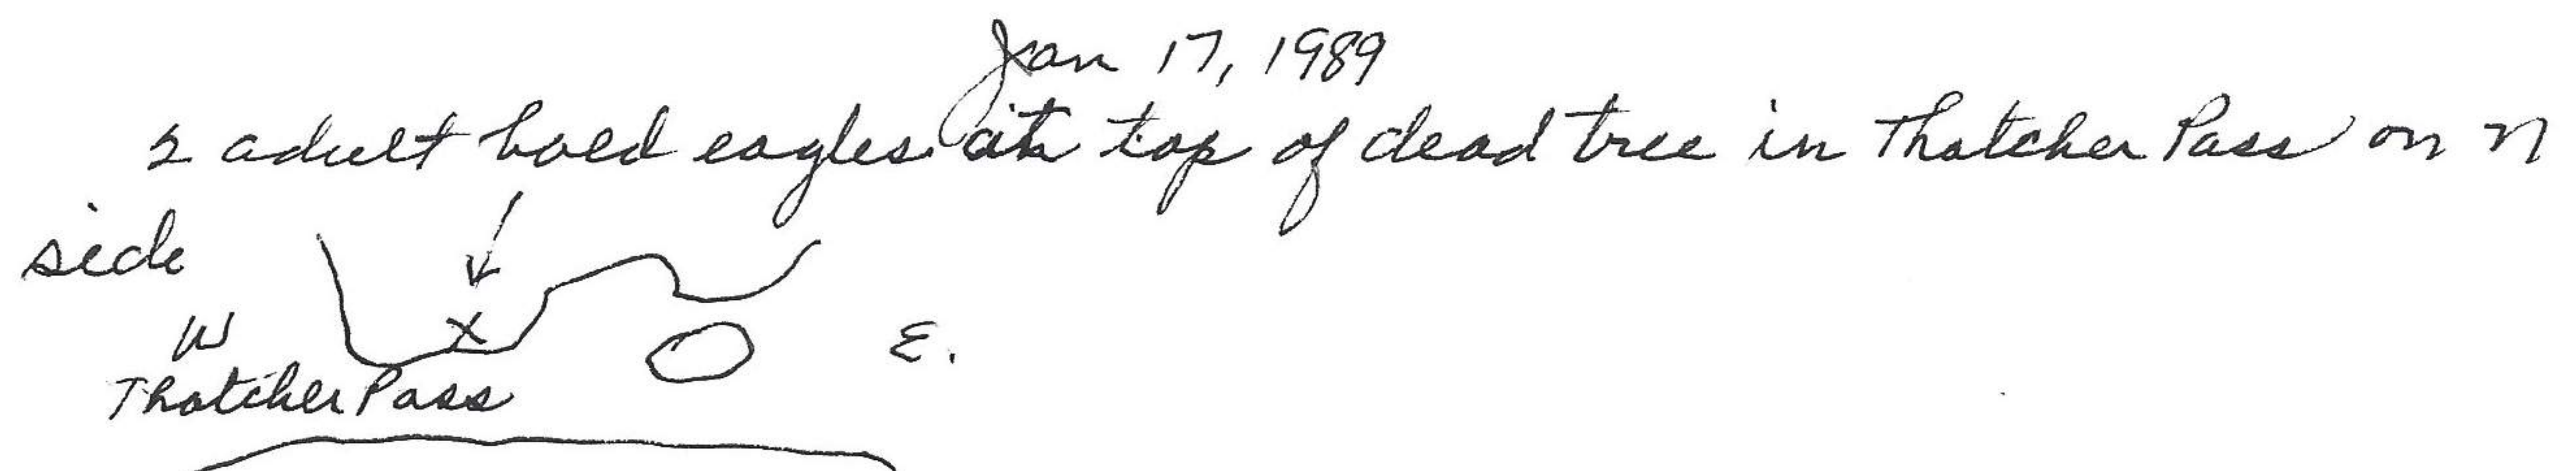 Jan 17, 1989
2 adult bald eagles at top of dead tree in Thatcher Pass on N
side
X
W
E.
Thatcher Pass